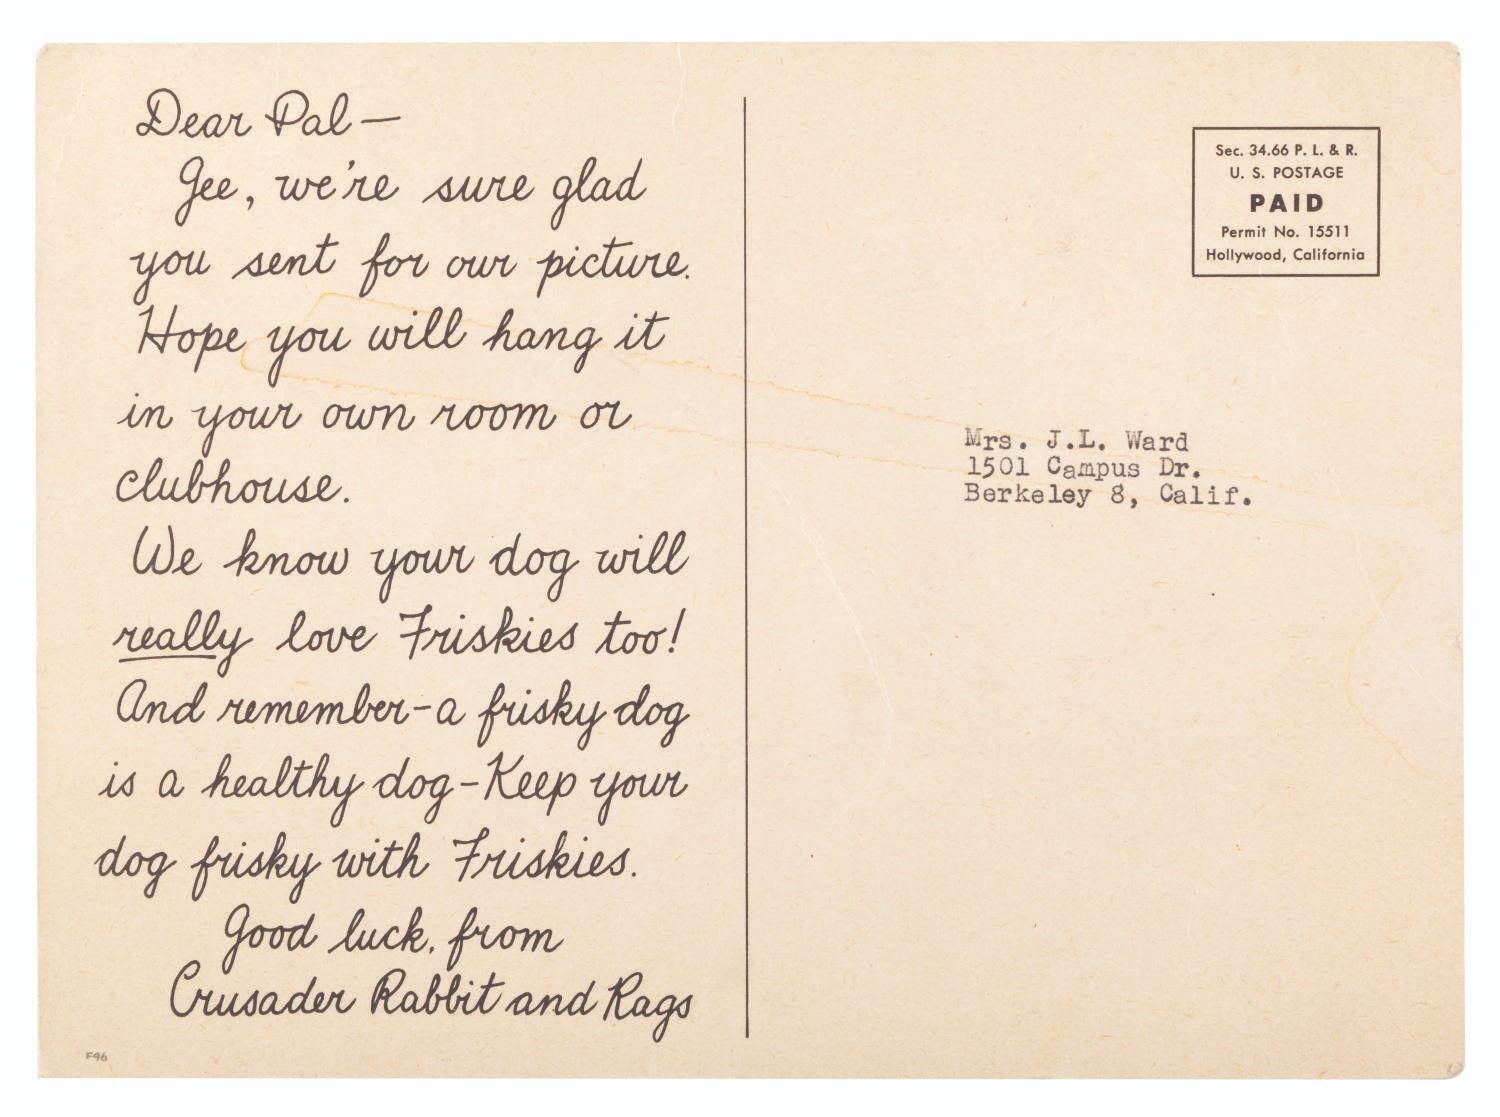 Dear Pal—
Gee, we're sure glad
you sent for our picture.
Hope you will hang it
in your own room or
clubhouse.
We know your dog will
really love Friskies too!
And remember-a frisky dog
is a healthy dog-Keep your
dog frisky with Friskies.
Good luck, from
Crusader Rabbit and Rags
F46
Sec. 34.66 P. L. & R.
U. S. POSTAGE
PAID
Permit No. 15511
Hollywood, California
Mrs. J.L. Ward
1501 Campus Dr.
Berkeley 8, Calif.